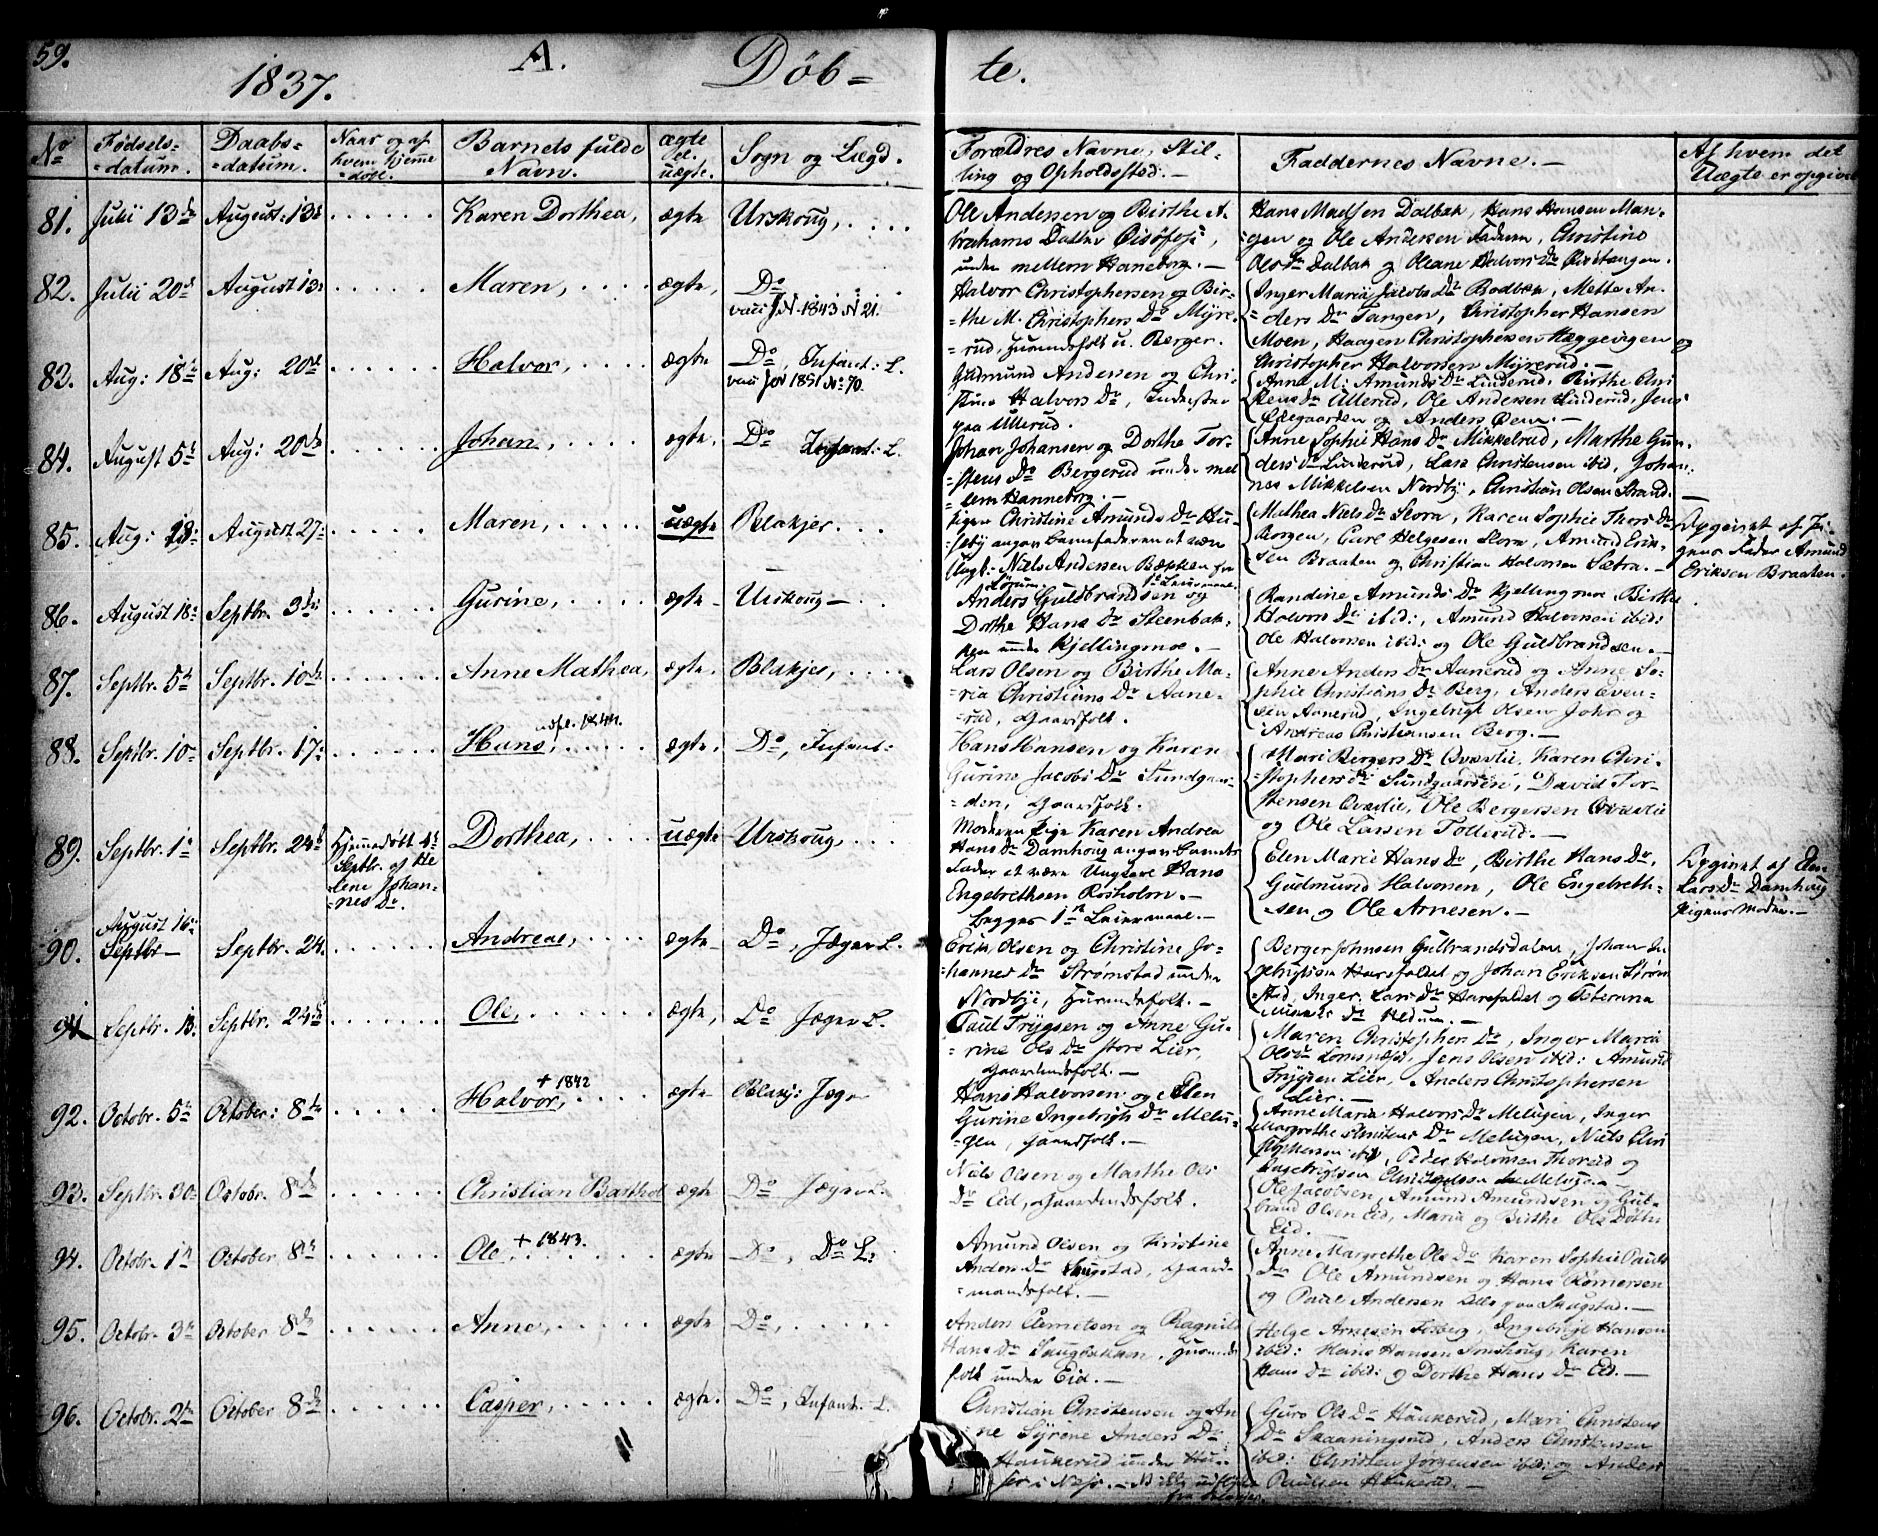 59.
1837.
A.
Døb= te.
No
Fødsels= =datum.
Daabs= =datum.
Naar og af hvem hjemme =døbt.
Barnets fulde Navn.
ægte el. uægte.
Sogn og Lægd.
Forældres Navne, Stil= ling og Opholdssted.—
Faddernes Navne.—
Af hvem det Uægte er opgivet
81. Julii 13de August: 13de Karen Dorthea, ægte Urskoug,
Ole Andersen og Birthe A=
brahams Datter
under mellem Haneborg.—
Hans Madsen Dalbak, Hans Hansen Man=
=gen og Ole Andersen Christine
Ols Dr Dalbak og Oleane Halvors Dr
82. Julii 20de August 13de Maren, ægte, Do
vacc J.N. 1843 N 21.
Halvor Christophersen og Bir=
=the M. Christophers Dr Myre=
=rud, Huusmandsfolk u. Berger.
Inger Maria Jacobs Dr Bodbæk, Mette An=
=ders Dr Tangen, Christopher Hansen
Moen, Haagen Christophersen Hæggevigen og
Christopher Halvorsen Myrerud.—
82. Aug: 18de Aug: 20de Halvor, ægte Do, Infant: L.
vacc Jov 1851 No 70.
Gudmund Andersen og Chri=
stine Halvors Dr, Inderster
paa Ullerud.
Anne M: Amunds Dr Linderud, Birthe Chri
stens Dr Ullerud, Ole Andersen Linderud, Jens
Ødegaarden og Anders Øen.—
84. August 5te Aug: 20de Johan, ægte, Do Infant: L.
Johan Johansen og Dorthe Tor=
=stens Dr Bergerud under mel
lem Hanneborg.—
Anne Sophie Hans Dr Mikkelrud, Marthe Gun
ders Dr Linderud, Lars Christensen ibid, Johan=
nes Mikkelsen Nordby, Christian Olsen Strand.—
85. Aug: 18: August 27: Maren, uægte Blakjer.
Pigen Christine Amunds Dr Hu=
=seby angav barnefaderen at være
Ungk: Niels Andersen Bækken fra
Sørum. 1ste Leiermaal.
Mathea Niels Dr Slora, Karen Sophie Thors Dr
Borgen, Carl Helgesen Slora, Amund Erik=
sen Braaten og Christian Halvorsen Sætra.—
Opgivet af Pi=
gens Fader Amund
Eriksen Braaten.
86. August 18de Septbr. 3de: Gurine, ægte Urskoug—
Anders Gulsbrandsen og
Dorthe Hans Dr Steenbak=
ken under Kjellingmoe.—
Randine Amunds Dr Kjellingmoe, Birthe
Halvors Dr ibid:, Amund Halvorsen ibid:
Ole Halvorsen ibid: og Ole Gulsbrandsen.—
87. Septbr. 5te Septbr. 10de Anne Mathea, ægte. Blakjer,
Lars Olsen og Birthe Ma=
=ria Christians Dr Aane=
=rud, Gaardsfolk.
Anne Anders Dr Aanerud og Anne So=
phie Christians Dr Berg, Anders Even=
sen Aanerud, Ingebrigt Olsen Johr og
Andreas Christiansen Berg.—
88. Septbr. 10de Septbr. 17: Hans, ægte, Do, Infant:
1844.
Hans Hansen og Karen
Gurine Jacobs Dr Sundgaar=
=den, Gaardsfolk.
Mari Bergers Dr Qvævlie, Karen Chri=
stophers Dr Sundgaarden, David Tor=
stensen Qvævlie, Ole Bergersen Qvævlie
og Ole Larsen Tollerud.—
89. Septbr. 1te Septbr. 24de Hjemmedøbt 4de
Septbr. af He
lene Johan=
=nes Dr. Dorthea, uægte Urskoug,
Moderen Pige Karen Andrea
Hans Dr Damhoug angav barnets
Fader at være Ungkarl Hans
Engebrethsen Rosholm.—
Begges 1ste Leiermaal.—
Elen Marie Hans Dr, Birthe Hans Dr,
Gudmund Halvorsen, Ole Engebreth=
sen og Ole Arnesen.—
Opgivet af
Lars Dr Damhoug
Pigens Moder.—
90. August 16de Septbr— Septbr. 24. Andreas, ægte. Do, Jæger L.
Erik Olsen og Christine Jo=
hannes Dr Strømstad under
Nordby, Huusmandsfolk.—
Berger Johnsen Gulbrandsdalen, Johan In
gebrigtsen Harefaldet og Johan Eriksen Strøm
stad, Inger Lars Dr Harefaldet og
91. Septbr. 13. Septbr. 24de Ole, ægte, Do Jæger L.
Paul Trygsen og Anne Gu=
=rine Ols Dr store Lier,
Gaardmandsfolk.—
Maren Christopher Dr, Inger Maria
Ols Dr Jens Olsen ibid: Amund
Trygsen Lier, Anders Christophersen
Lier.—
92. Octobr. 5te October: 8de Halvor, ægte Blakj: Jæg.
+ 1842
Hans Halvorsen og Elen
Gurine Ingebrigts Dr Melu=
=gen, Gaardsfolk.—
Anne Maria Halvors Dr Melugen, Inger
Margrethe Christens Dr Melugen, Niels Chri
stophersen ibid, Peder Halvorsen Thoreid og
Ingebrigtsen Melugen—
93. Septbr. 30. Octobr. 8de Christian Barthol ægte Do Jæger L.
Niels Olsen og Marthe Ols
Dr Eid, Gaardmandsfolk.
Ole Jacobsen, Amund Amundsen og Gul=
brand Olsen Eid, Maria og Birthe Ols Døttre
Eid.—
94. Octobr. 1te October 8de Ole, ægte Do, Do L:
+ 1843.
Amund Olsen og Kristine
Anders Dr Skugstad, Gaard=
=mandsfolk.—
Anne Margrethe Ols Dr Karen Sophie Pauls
Dr Ole Amundsen og Hans Romersen
og Paul Andersen alle paa Skugstad.—
95. Octobr. 3de October 8de Anne, ægte Do,
Anders Clemetsen og Ragnild
Hans Dr Haugbakken, Huusmands
folk under Eid.—
Helge Arnesen Fosberg, Ingebrigt Hansen
ibid: Hans Hansen Karen
Hans Dr ibid: og Dorthe Hans Dr Eid.—
96. Octobr. 2den October 8de Casper, ægte. Do, Infant: L.
Christian Christensen og An
ne Syrene Anders Dr
Haukerud under
i Næs.—
Guro Ols Dr Haukerud, Mari Christens
Dr Skaaningsrud, Anders Christensen
ibid: Christen Jørgensen ibid: og Anders
Paulsen Haukerud.—